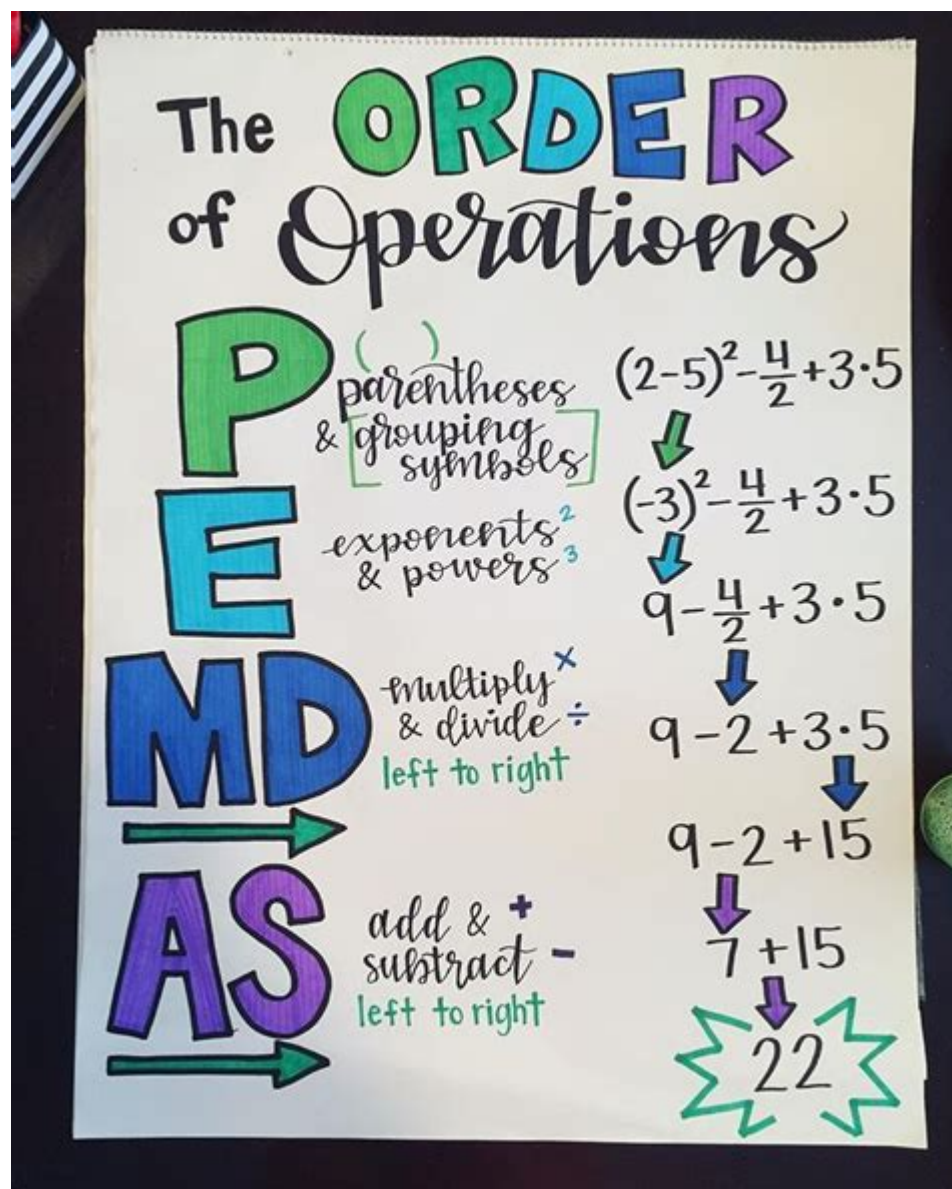 The ORDER
of Operations
P
( )
parentheses
& [grouping
symbols]
E
exponents²
& powers³
MD
multiply ×
& divide ÷
left to right
AS
add & +
subtract −
left to right
(2-5)²-4/2+3·5
(-3)²-4/2+3·5
9-4/2+3·5
9-2+3·5
9-2+15
7+15
22